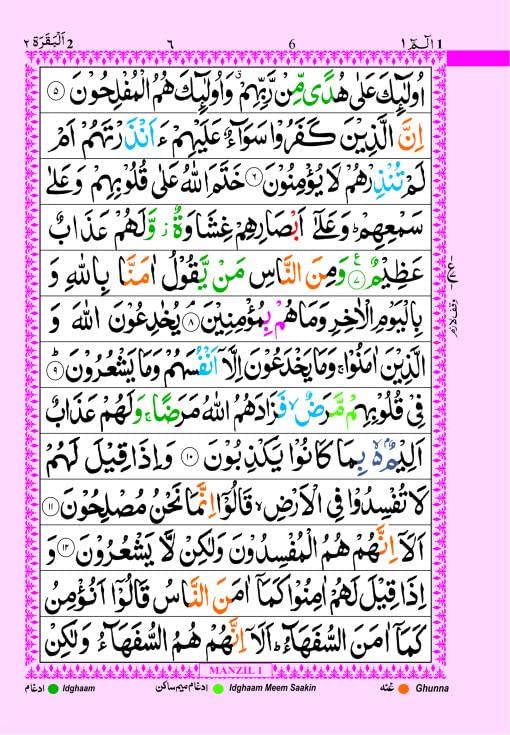 1 الٓمّٓ ١ 6 ٦ 2 اَلْبَقَرَة ٢
اُولٰٓئِكَ عَلٰى هُدًى مِّنْ رَّبِّهِمْ ۙ وَاُولٰٓئِكَ هُمُ الْمُفْلِحُوْنَ ۝٥
اِنَّ الَّذِيْنَ كَفَرُوْا سَوَآءٌ عَلَيْهِمْ ءَاَنْذَرْتَهُمْ اَمْ
لَمْ تُنْذِرْهُمْ لَا يُؤْمِنُوْنَ ۝٦ خَتَمَ اللّٰهُ عَلٰى قُلُوْبِهِمْ وَعَلٰى
سَمْعِهِمْ ؕ وَعَلٰٓى اَبْصَارِهِمْ غِشَاوَةٌ ؗ وَّلَهُمْ عَذَابٌ
عَظِيْمٌ ۝٧ ع وَمِنَ النَّاسِ مَنْ يَّقُوْلُ اٰمَنَّا بِاللّٰهِ وَ
بِالْيَوْمِ الْاٰخِرِ وَمَا هُمْ بِمُؤْمِنِيْنَ ۘ ۝٨ يُخٰدِعُوْنَ اللّٰهَ وَ
وقف لازم
الَّذِيْنَ اٰمَنُوْا ۚ وَمَا يَخْدَعُوْنَ اِلَّاۤ اَنْفُسَهُمْ وَمَا يَشْعُرُوْنَ ؕ ۝٩
فِيْ قُلُوْبِهِمْ مَّرَضٌ ۙ فَزَادَهُمُ اللّٰهُ مَرَضًا ۚ وَلَهُمْ عَذَابٌ
اَلِيْمٌۢ ۙ۬ بِمَا كَانُوْا يَكْذِبُوْنَ ۝١٠ وَاِذَا قِيْلَ لَهُمْ
لَا تُفْسِدُوْا فِى الْاَرْضِ ۙ قَالُوْۤا اِنَّمَا نَحْنُ مُصْلِحُوْنَ ۝١١
اَلَاۤ اِنَّهُمْ هُمُ الْمُفْسِدُوْنَ وَلٰكِنْ لَّا يَشْعُرُوْنَ ۝١٢ وَ
اِذَا قِيْلَ لَهُمْ اٰمِنُوْا كَمَاۤ اٰمَنَ النَّاسُ قَالُوْۤا اَنُؤْمِنُ
كَمَاۤ اٰمَنَ السُّفَهَآءُ ؕ اَلَاۤ اِنَّهُمْ هُمُ السُّفَهَآءُ وَلٰكِنْ
MANZIL 1
ادغام Idghaam ادغام میم ساکن Idghaam Meem Saakin غنه Ghunna